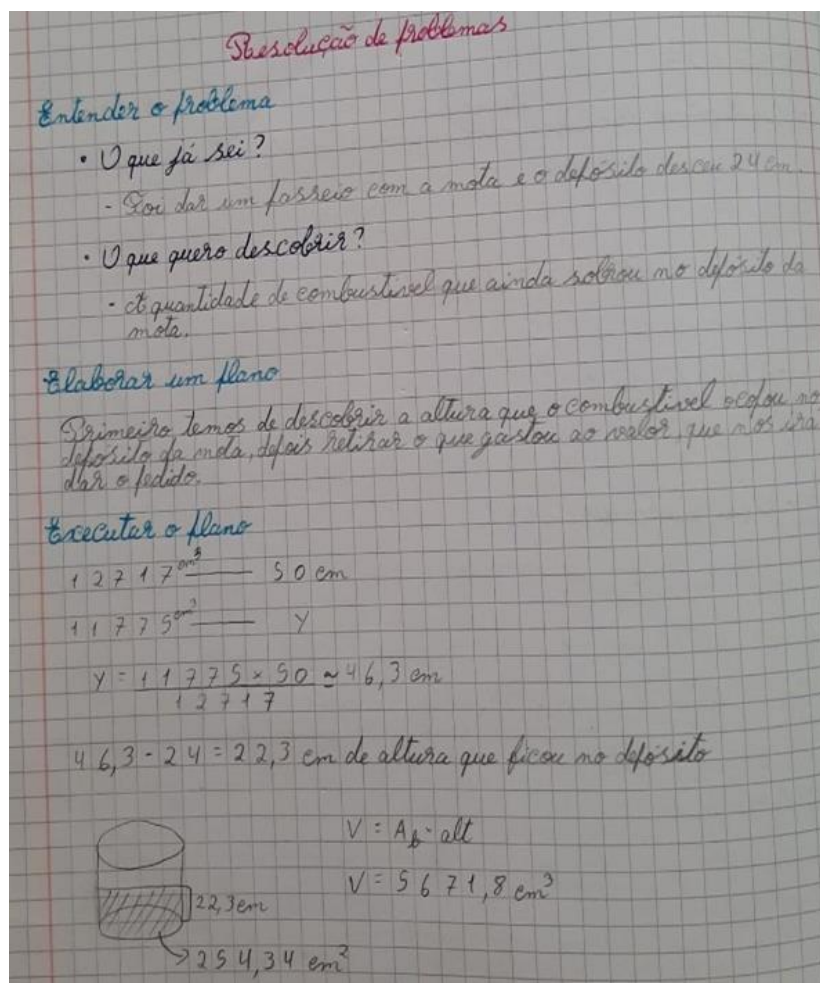 Resolução de problemas
Entender o problema
• O que já sei?
- Foi dar um passeio com a mota e o depósito desceu 24 cm.
• O que quero descobrir?
- A quantidade de combustível que ainda sobrou no depósito da
mota.
Elaborar um plano
Primeiro temos de descobrir a altura que o combustível ocupou no
depósito da mota, depois retirar o que gastou ao valor, que nos irá
dar o pedido.
Executar o plano
12717 cm³ —— 50 cm
11775 cm³ —— y
y = 11775 × 50 ≃ 46,3 cm
12717
46,3 - 24 = 22,3 cm de altura que ficou no depósito
V = Ab · alt
V = 5671,8 cm³
22,3 cm
254,34 cm²